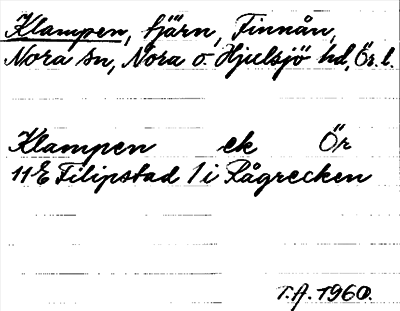 Klampen, tjärn, Finnån,
Nora sn, Nora o. Hjulsjö hd, Ör. l.
Klampen ek Ör
11E Filipstad 1 i Rågrecken
T.A. 1960.